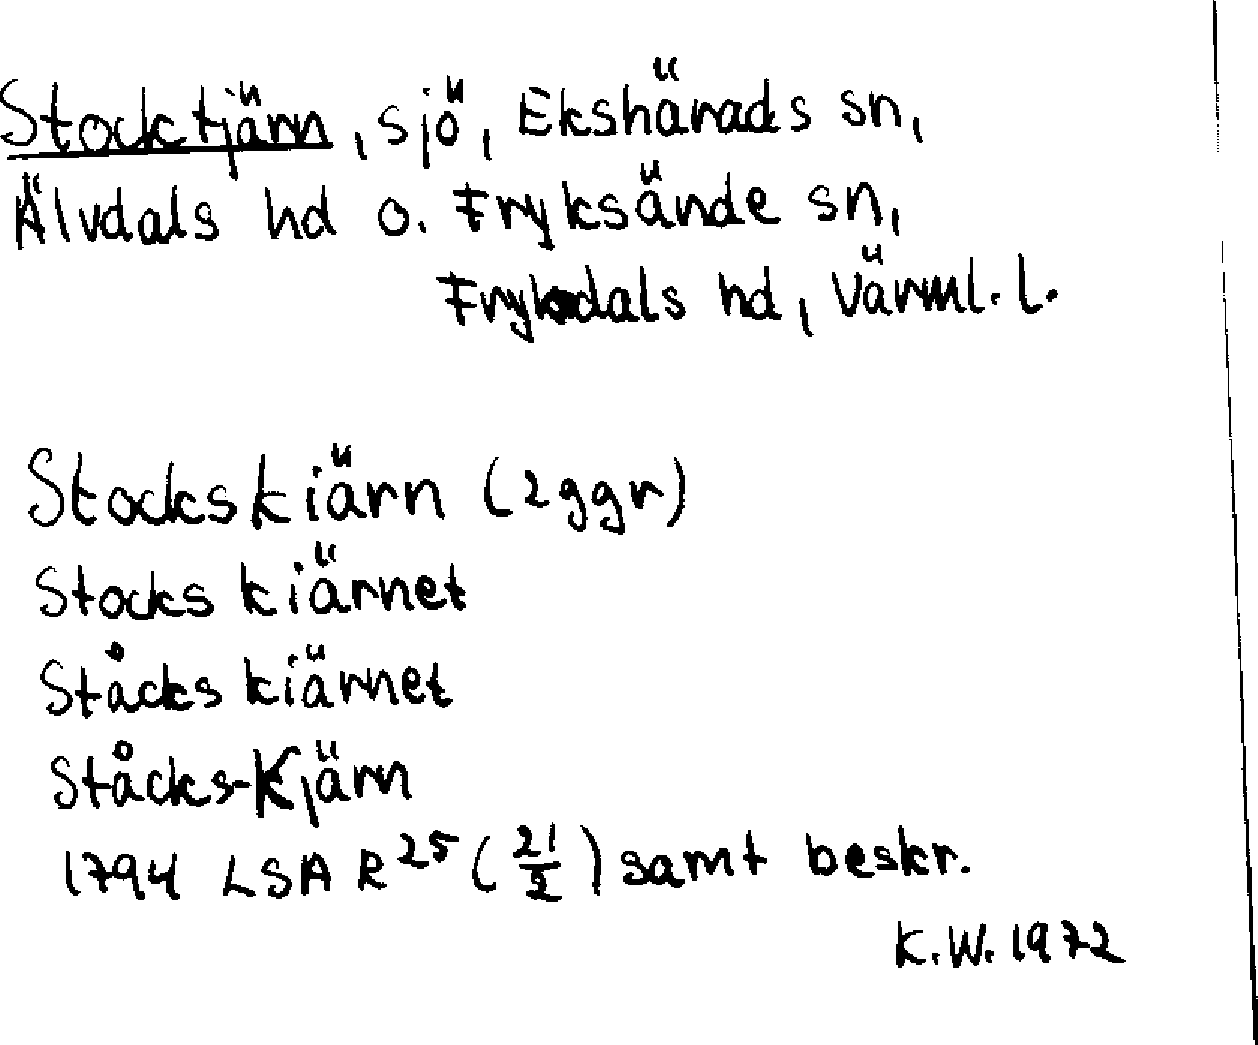 Stocktjärn, sjö, Ekshärads sn,
Älvdals hd o. Fryksände sn,
Frykdals hd, Värml. l.
Stockskiärn (2ggr)
Stocks kiärnet
Ståcks kiärnet
Ståcks-Kjärn
1794 LSA R 25 (21/2) samt beskr.
K.W. 1972